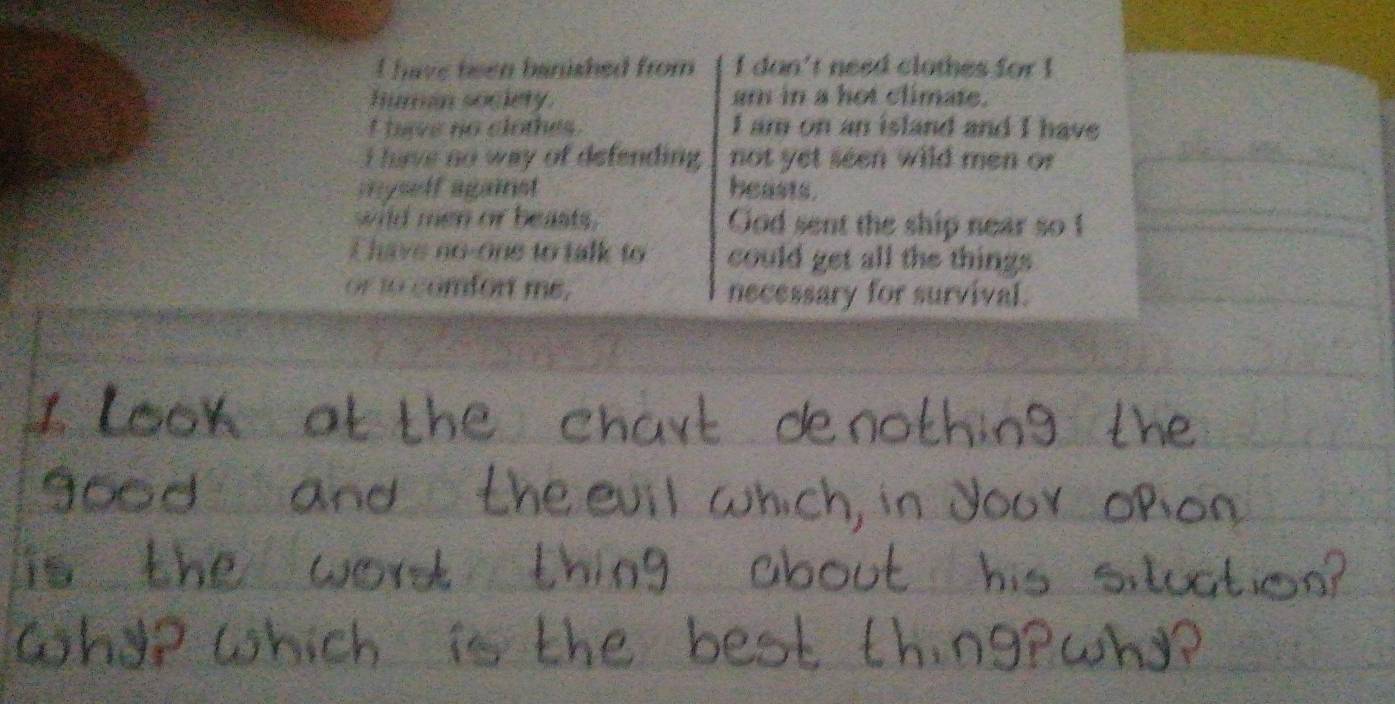 I have been banished from
human society.
I have no clothes.
I have no way of defending
myself against
wild men or beasts.
I have no-one to talk to
or to comfort me.
I don't need clothes for I
am in a hot climate.
I am on an island and I have
not yet seen wild men or
beasts.
God sent the ship near so I
could get all the things
necessary for survival.
1. Look at the chart denothing the
good and the evil which, in your opion
is the worst thing about his situation?
Why? Which is the best thing? why?